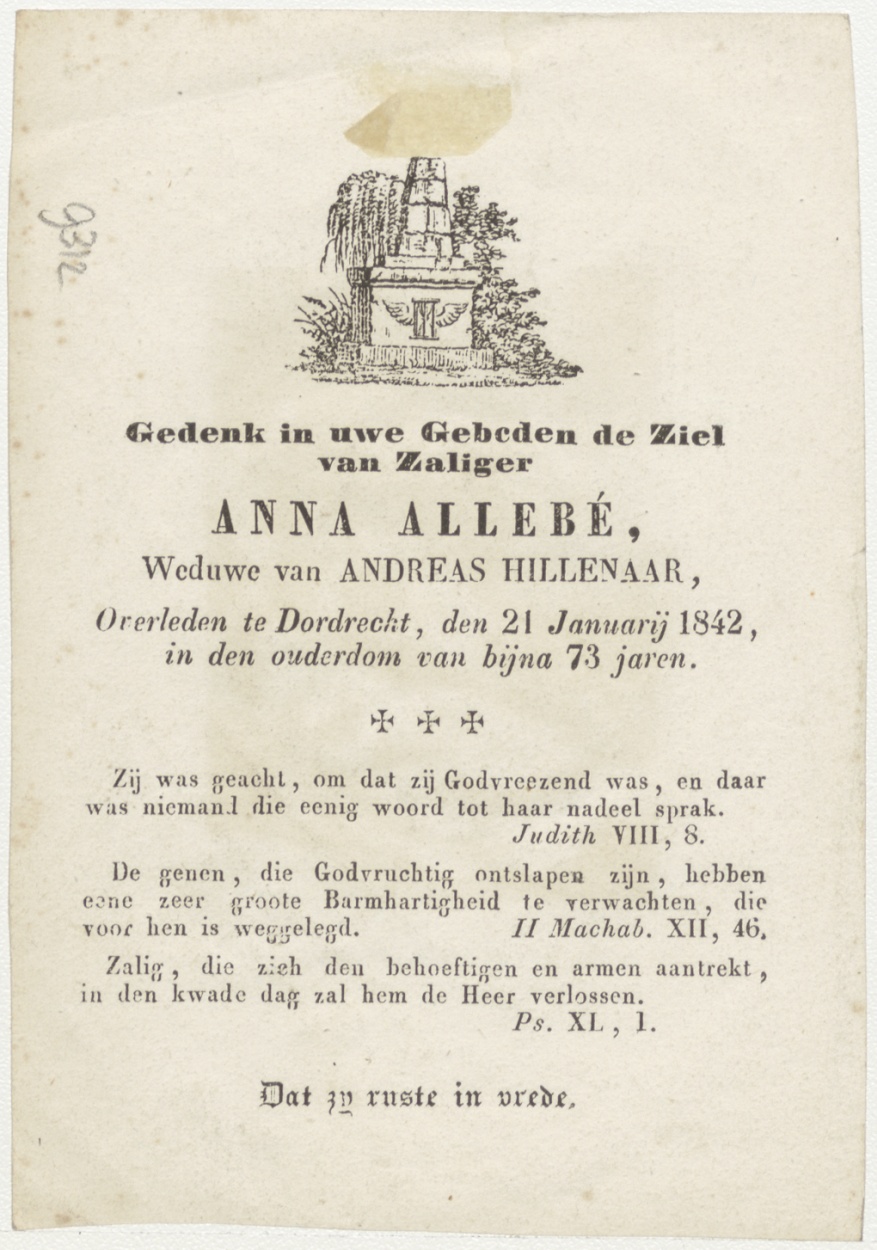 9312
Gedenk in uwe Gebeden de Ziel
van Zaliger
ANNA ALLEBÉ,
Weduwe van ANDREAS HILLENAAR,
Overleden te Dordrecht, den 21 Januarij 1842,
in den ouderdom van bijna 73 jaren.
✠ ✠ ✠
Zij was geacht, om dat zij Godvreezend was, en daar
was niemand die eenig woord tot haar nadeel sprak.
Judith VIII, 8.
De genen, die Godvruchtig ontslapen zijn, hebben
eene zeer groote Barmhartigheid te verwachten, die
voor hen is weggelegd. II Machab. XII, 46.
Zalig, die zich den behoeftigen en armen aantrekt,
in den kwade dag zal hem de Heer verlossen.
Ps. XL, 1.
Dat zy ruste in vrede.